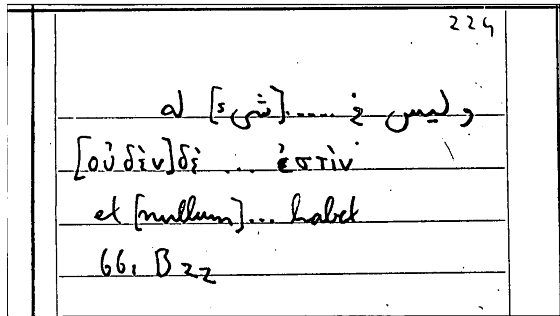 224
وليس ..... [شيء] له
[οὐδὲν]δὲ ... ἐστὶν
et [nullum]... habet
66, B 22